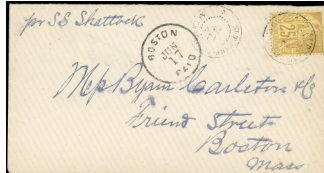 per SS Shattock
BOSTON
JUN
17
PAID
25
Mess Byam Carleton & Co
Friend Street
Boston
Mass